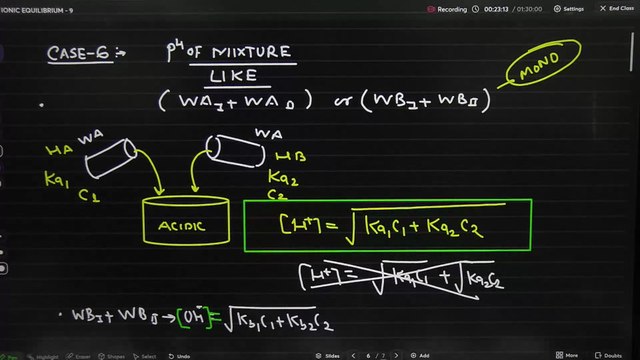 IONIC EQUILIBRIUM - 9
Recording
00:23:13 / 01:30:00
Settings
End Class
CASE-6 :-
pH OF MIXTURE
LIKE
(WA I + WA II) or (WB I + WB II)
MONO
WA
HA
Ka1
C2
WA
HB
Ka2
C2
ACIDIC
[H+] = √Ka1C1 + Ka2C2
[H+] = √Ka1C1 + √Ka2C2
• WB I + WB II → [OH-] = √Kb1C1 + Kb2C2
Pen
Highlight
Eraser
Shapes
Backgrounds
Select
Undo
6 / 7
Doubts